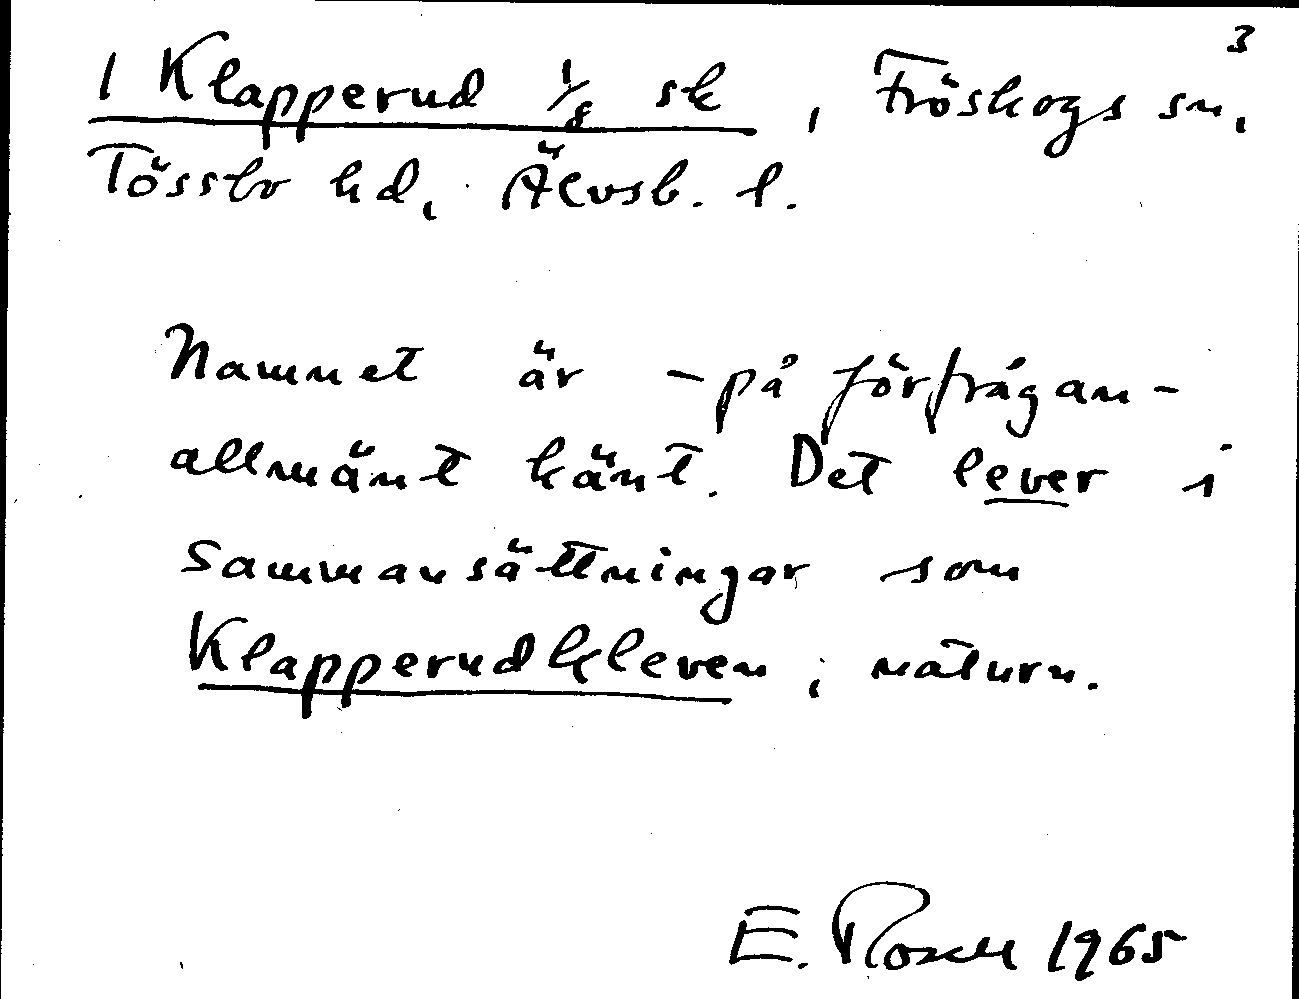 3
1 Klapperud 1/8 sk, Fröskogs sn,
Tössbo hd, Älvsb. l.
Namnet är - på förfrågan -
allmänt känt. Det lever i
sammansättningar som
Klapperudkleven, naturn.
E. 1965